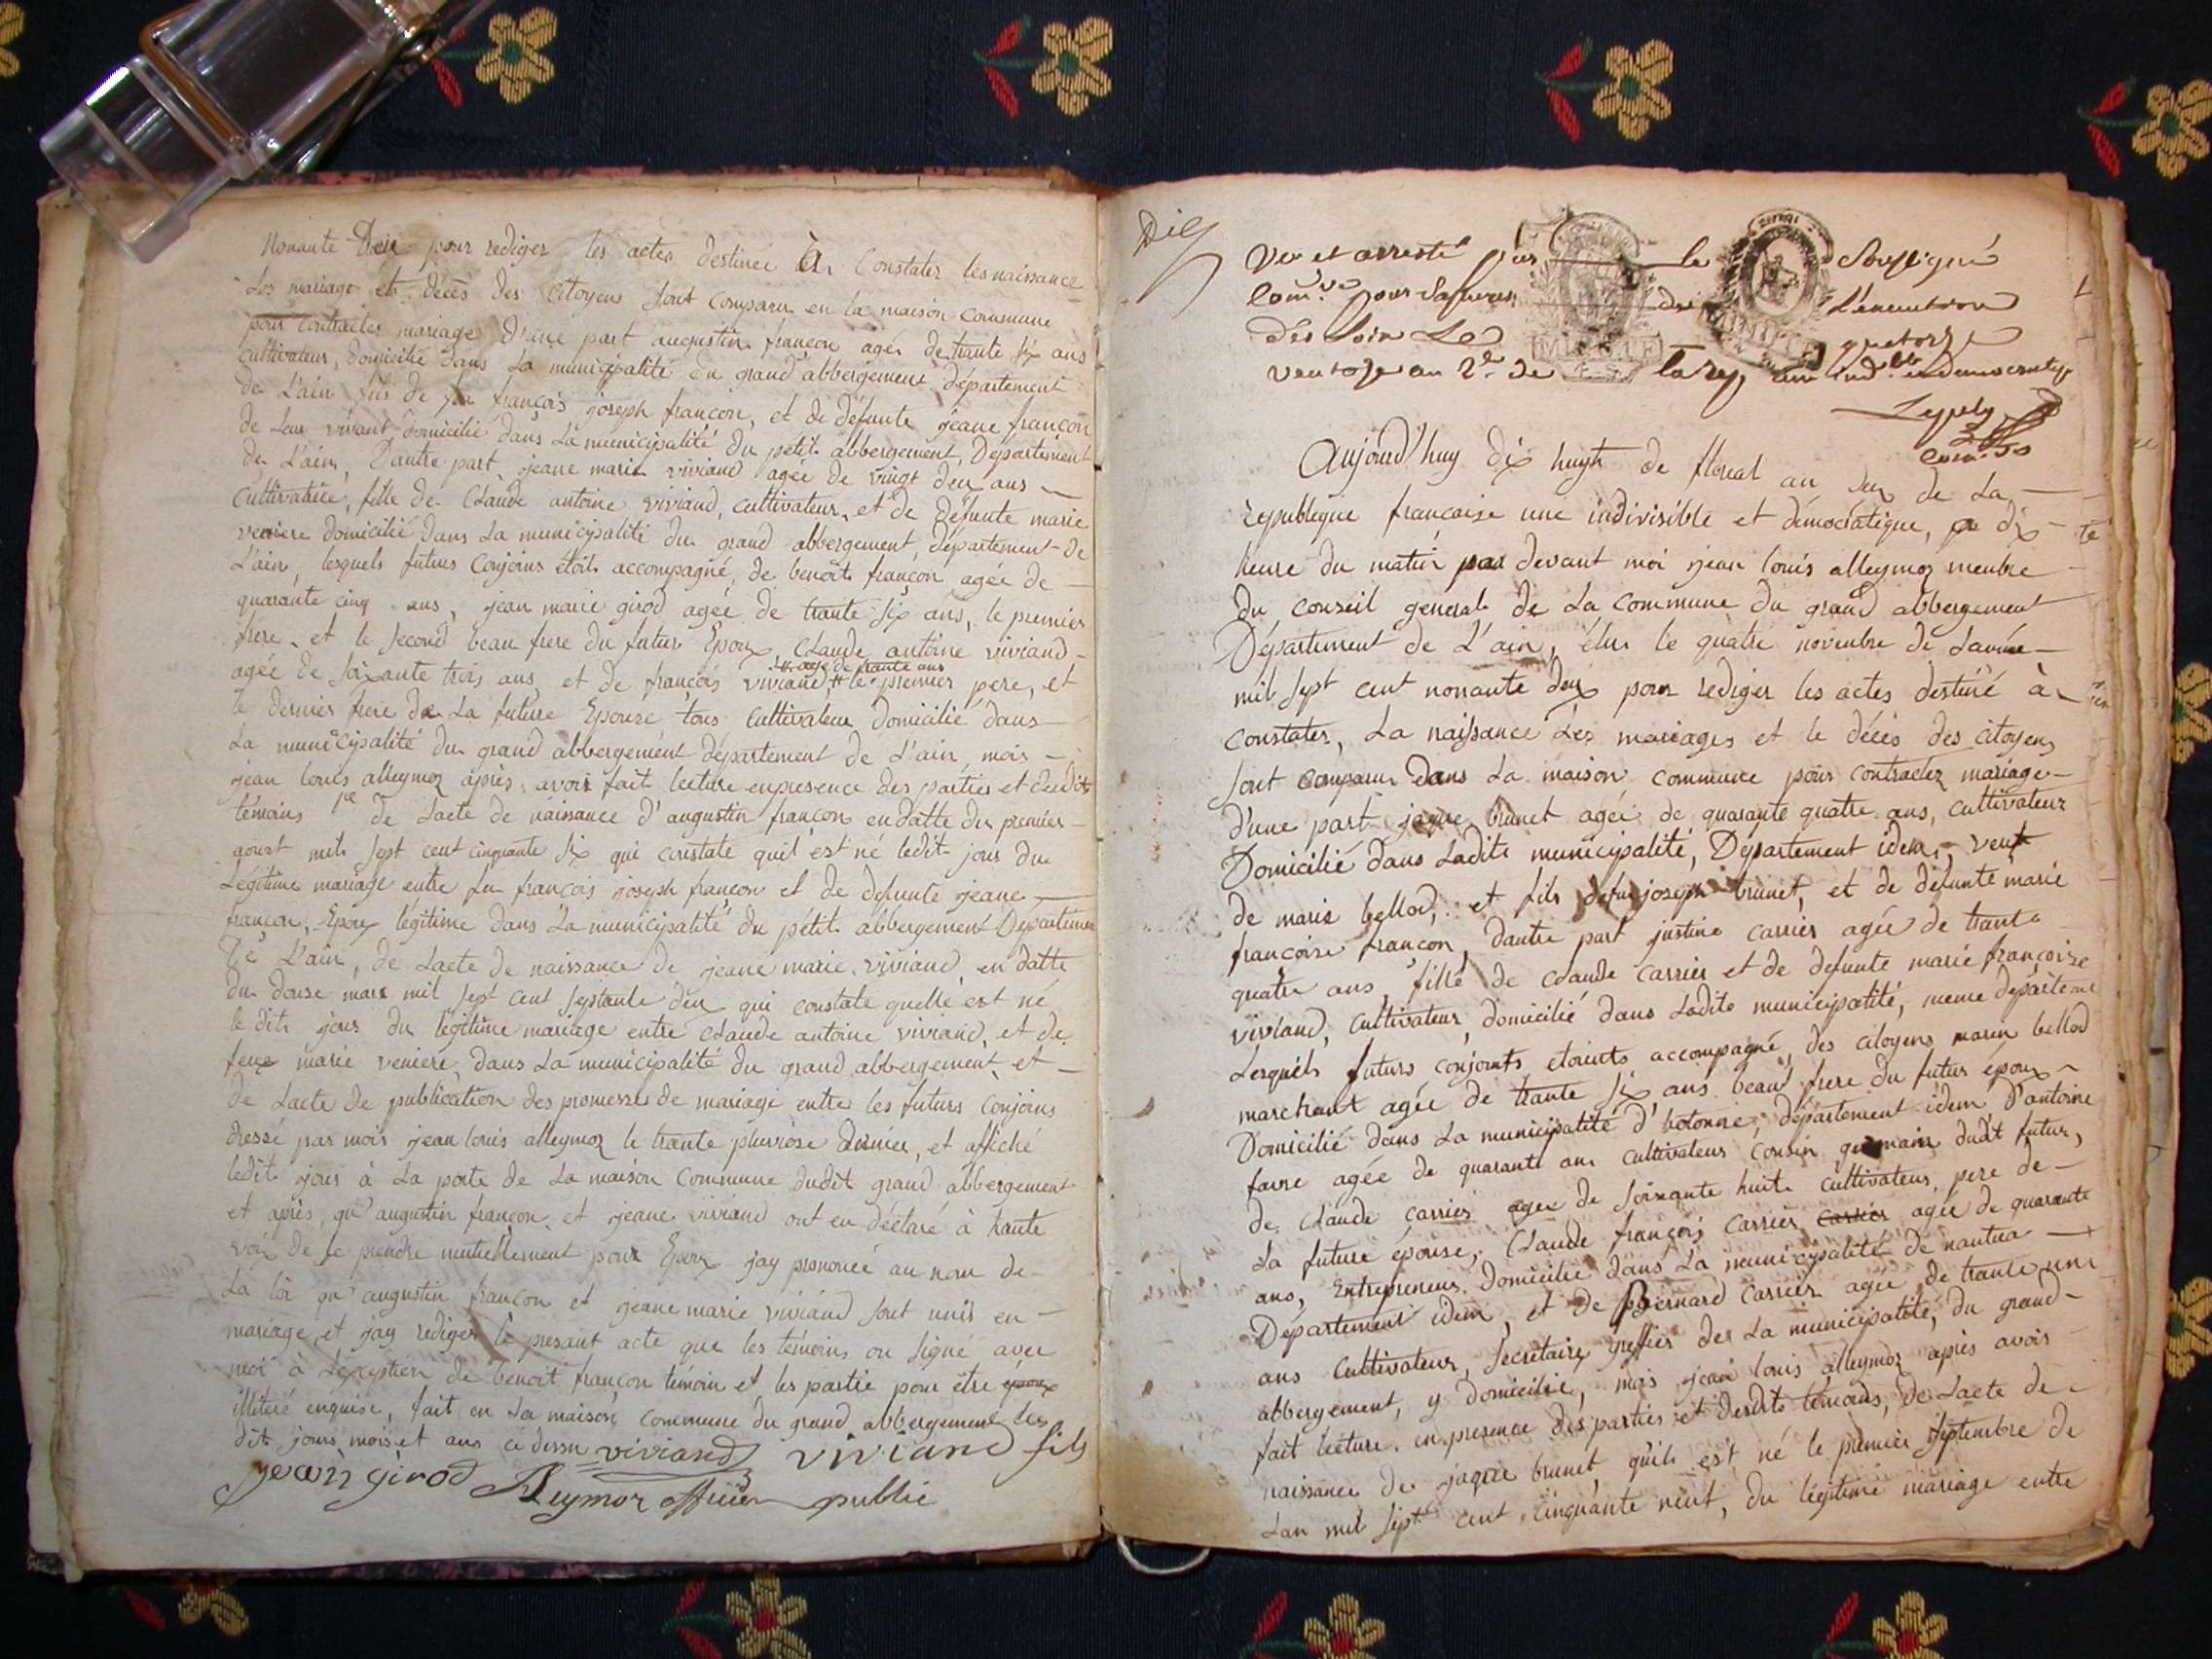 Nonante Deux pour rediger les actes destineé à Constater les naissance
Les mariage et décès des citoyens sont comparu en la maison commune
pour contracter mariage D'une part augustin françon ageé de trante six ans
cultivateur, domicilié dans La municipalité du grand abbergement département
de L'ain fils de feu françois joseph françon, et de défunte jeane françon
de Leur vivant domicilié dans La municipalité du pétit abbergement, Département
de L'ain, D'autre part jeane marie viviand ageé de vingt deux ans
cultivatrice, fille de Claude antoine viviand, cultivateur, et de défunte marie
veniere domicilié Dans La municipalité du grand abbergement, département de
L'ain, lesquels futurs Conjoins étoit accompagné, de benoit françon ageé de
quarante cinq ans, jean marie girod ageé de trante six ans, le premier
frere, et le second beau frere du futur Epoux, Claude antoine viviand
ageé de soixante trois ans, et de françois viviand # le premier pere, et
# ageé de trante ans
le dernier frere de La future Epouse tous cultivateur Domicilié dans
La municipalité du grand abbergement département de L'ain mois
jean louis alleymoz après avoir fait lecture en presence des parties et desdits
témoins 1re de Lacte de naissance d'augustin françon en datte du premier
aoust mil sept cent cinquante six qui constate quil est né ledit jour du
Légitime mariage entre feu françois joseph françon et de defunte jeane
françon, Epoux légitime dans La municipalité du pétit abbergement Département
de L'ain, de Lacte de naissance de jeane marie viviand en datte
du douse mars mil sept cent septante deux qui constate quelle est né
le dit jour du légitime mariage entre claude antoine viviand, et de
feue marie veniere, dans La municipalité du grand abbergement et
de Lacte de publication des promesses de mariage entre les futurs Conjoins
dressé par mois jean louis alleymoz le trante pluviose dernier, et affiché
ledit jour à La porte de La maison Commune dudit grand abbergement
et après, qu'augustin françon et jeane viviand ont eu déclaré à haute
voix de se prendre mutuellement pour Epoux jay prononcé au nom de
La loi qu'augustin françon et jeane marie viviand sont unis en
mariage, et jay rediger le presant acte que les témoins on signé avec
moi à L'exception de benoit françon témoin et les partie pour étre epoux
illiteré enquise, fait en La maison commune du grand abbergement les
dit jours mois et ans ci dessu viviand viviand fils
jean girod Aleymoz officier public
Dil
Vu et arresté par le Soussigné
Comre pour de L'execution
des Loix Le quatorze
ventose an 2e de La rep une indble et democratiqe
Aujourd'huy dix huyt de floreal an deux de La
republique francaise une indivisible et démocratique, a dix
heure du matin par devant moi jean louis alleymoz menbre
du conseil general de La commune du grand abbergement
Département de L'ain, élu le quatre novembre de Lannée
mil sept cent nonante deux pour rediger les actes destiné à
constater, La naissance Les mariages et le décès des citoyens
sont comparu dans La maison commune pour contracter mariage
d'une part jaque brunet ageé de quarante quatre ans, cultivateur
Domicilié dans Ladite municipalité, Département idem, veuf
de marie bellod, et fils defeu joseph brunet, et de défunte marie
francoise françon, dautre part justine carrier ageé de trante
quatre ans fille de claude Carrier et de defunte marie françoise
viviand, cultivateur, domicilié dans Ladite municipalité, meme départeme
Lesquels futurs conjoints etoients accompagné, des citoyens marin bellod
marchant ageé de trante six ans beau frere du futur époux
Domicilié dans La municipalité d'hotonne, département idem D'antoine
favre ageé de quarante ans cultivateur cousin germain dudit futur,
de Claude carrier agee de soixante huite cultivateur, pere de
La future épouse, Claude françois carrier carrier ageé de quarante
ans, Entrepreneur domicilié dans La municipalité de nantua
Département idem, et de Bernard Carrier ageé de trante un
ans cultivateur, secretaire greffier de La municipalité, du grand
abbergement, y domicilié, mois jean louis alleymoz après avoir
fait lecture en presence des parties et desdits témoins, de Lacte de
naissance de jaque brunet, quils est né le premier septembre de
Lan mil sept cent cinquante neuf, du légitime mariage entre